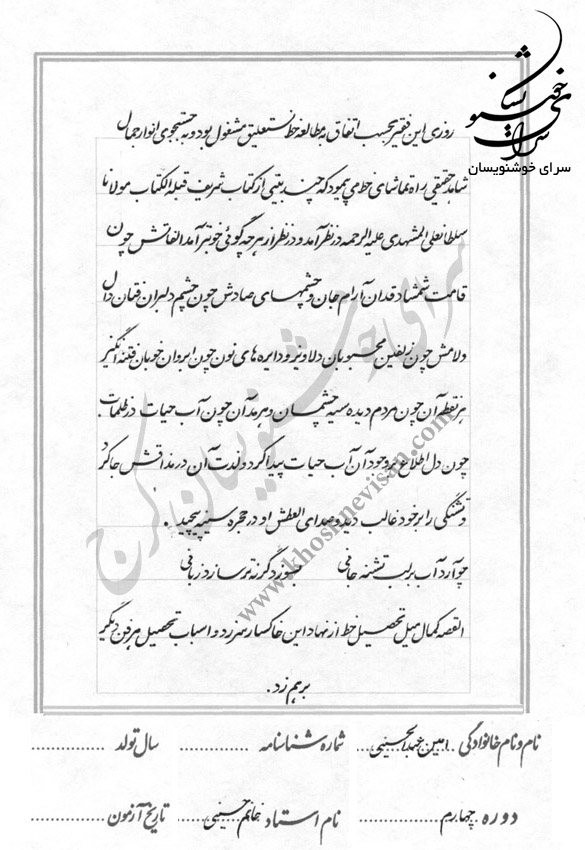 سرای خوشنویسان
سرای خوشنویسان
روزی این فقیر بحسب اتفاق به مطالعه خط نستعلیق مشغول بود و به جستجوی انوار جمال
شاهد حقیقی راه تماشای خط می پیمود که چند بیتی از کتاب شریف قبله الکتاب مولانا
سلطانعلی المشهدی علیه الرحمه در نظر آمد و در نظر از هر چه گوئی خوبتر آمد الفاتش چون
قامت شمشاد قدان آرام جان و چشمهای صادش چون چشم دلبران فتان دال
و لامش چون زلفین محبوبان دلاویز و دایره های نون چون ابروان خوبان فتنه انگیز
هر نقطه آن چون مردم دیده سیه چشمان و هر مد آن چون آب حیات در ظلمات.
چون دل اطلاع بر وجود آن آب حیات پیدا کرد و لذت آن در مذاقش جا کرد
تشنگی را بر خود غالب دید و صدای العطش او در حجره سینه پیچید.
چو آرد آب بر لب تشنه جانی
القصه کمال میل تحصیل خط از نهاد این خاکسار سر زد و اسباب تحصیل هر فن دیگر
برهم زد.
سرای خوشنویسان کرج
www.khoshnevisan.com
نام و نام خانوادگی امین عبدالحسینی شماره شناسنامه ............ سال تولد ............
دوره چهارم نام استاد خانم حسینی تاریخ آزمون ............